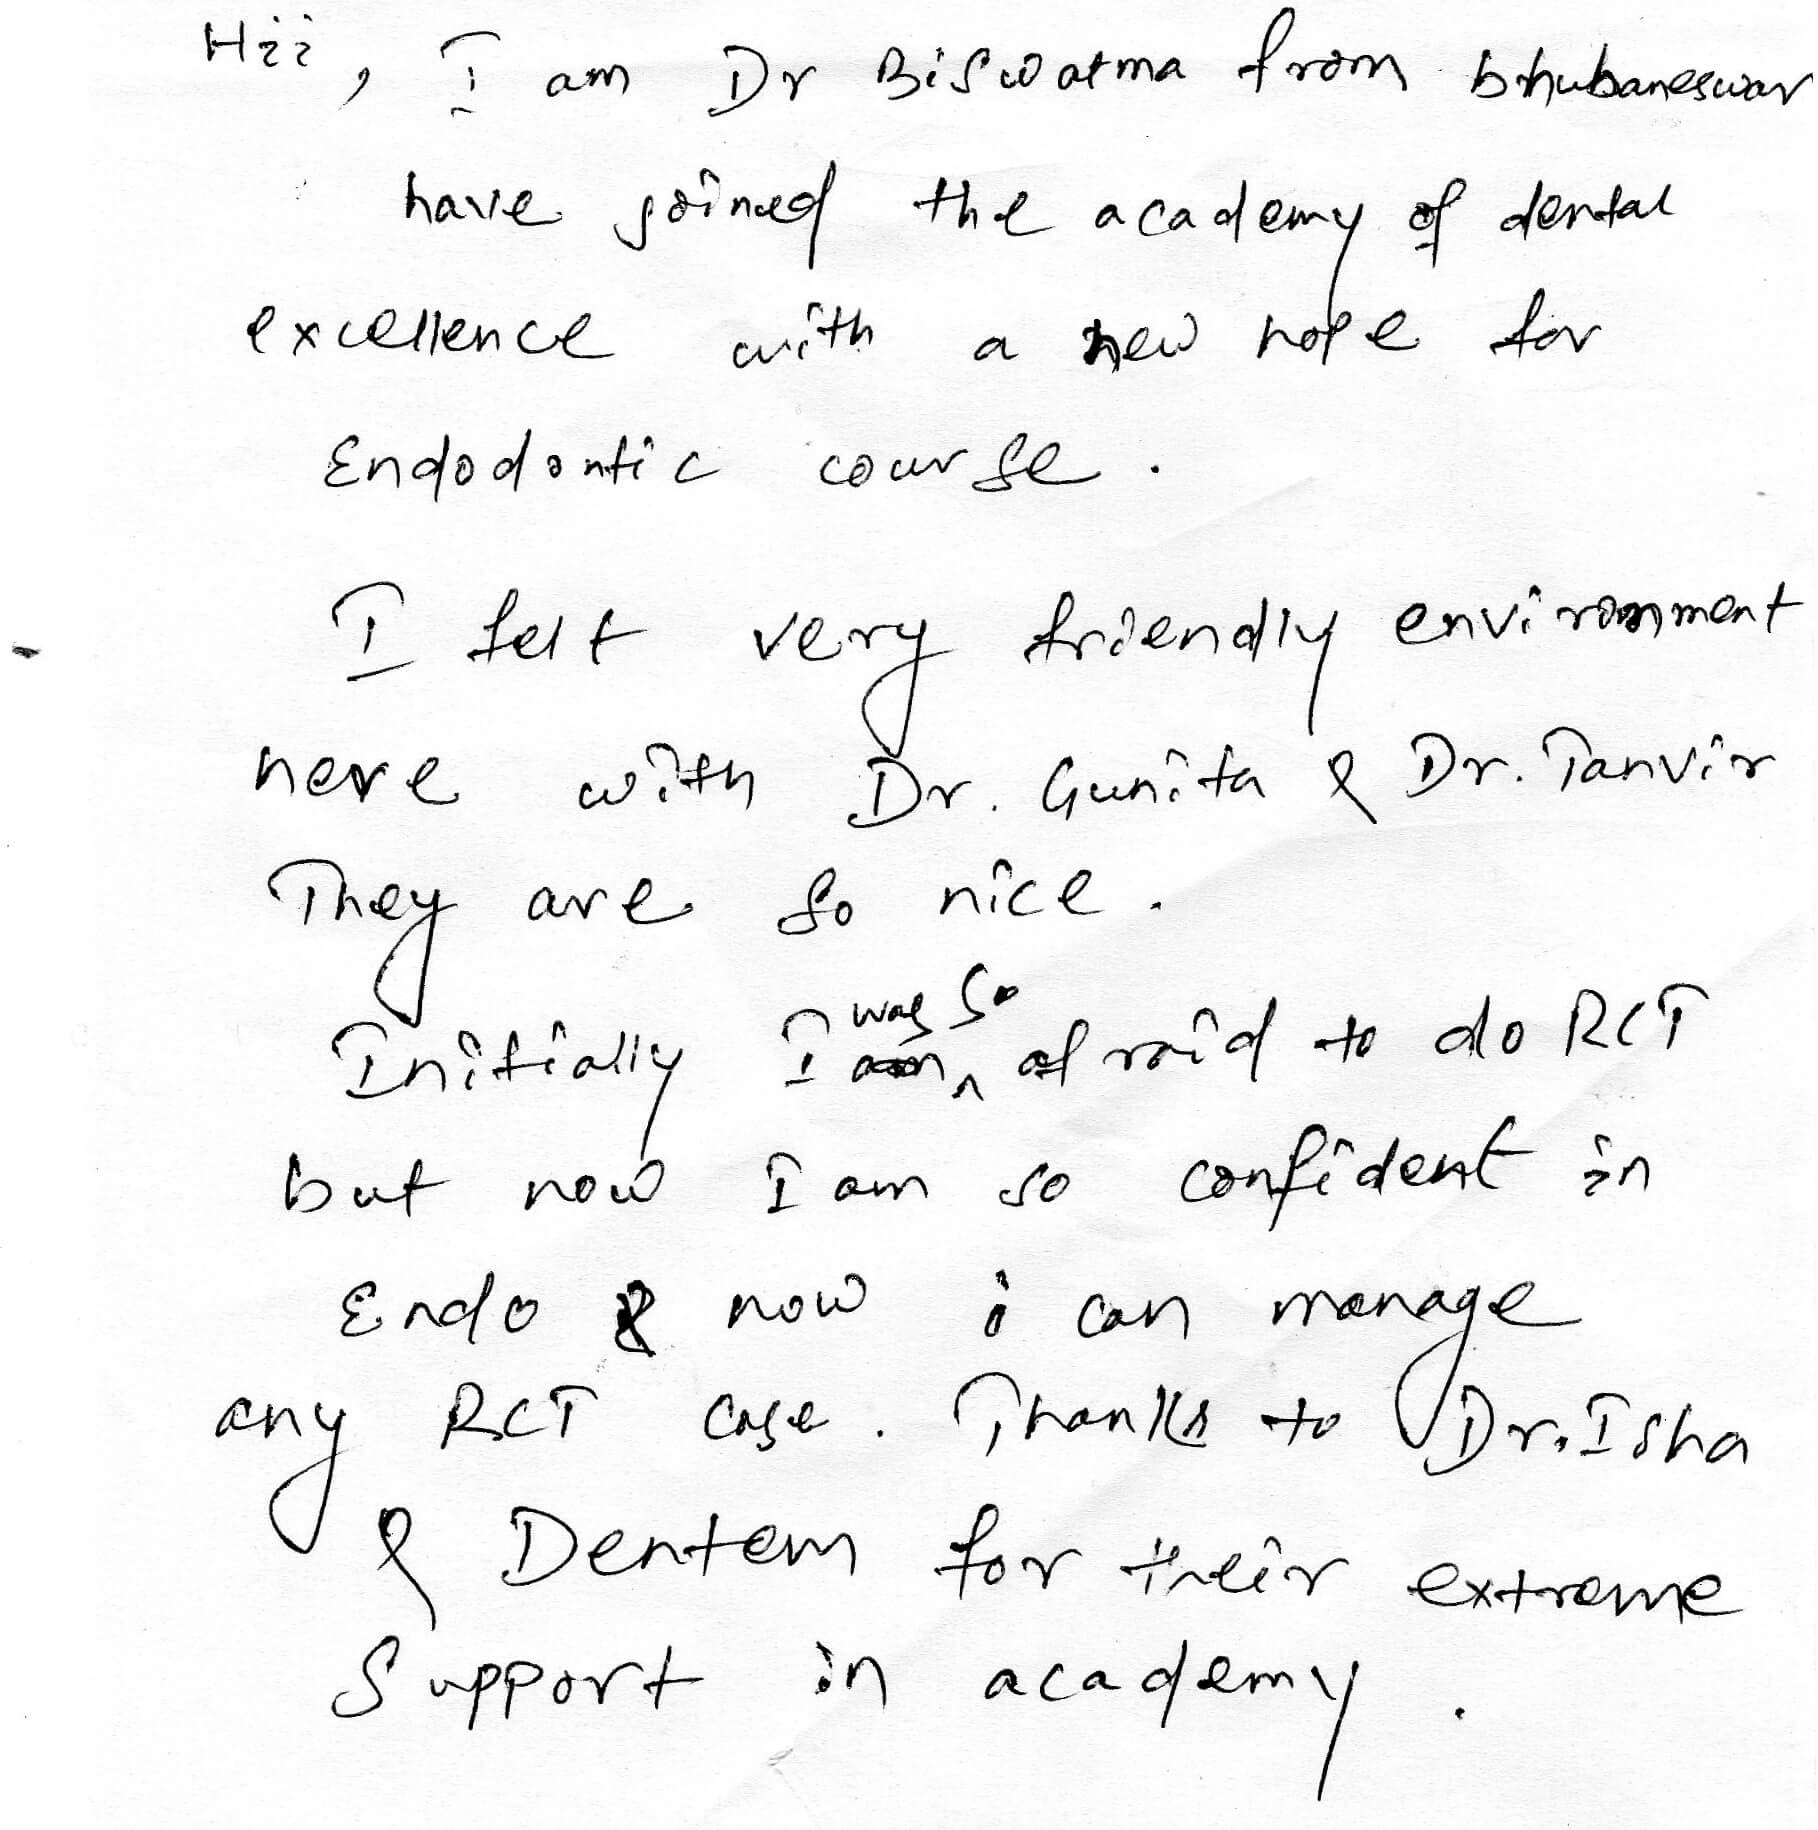 Hii, I am Dr Biswatma from bhubaneswar
have joined the academy of dental
excellence with a new hope for
Endodontic course.
I felt very friendly environment
here with Dr. Gunita & Dr. Tanvir
They are so nice.
Initially I was so afraid to do RCT
but now I am so confident in
Endo & now i can manage
any RCT case. Thanks to Dr. Isha
& Dentem for their extreme
Support in academy.